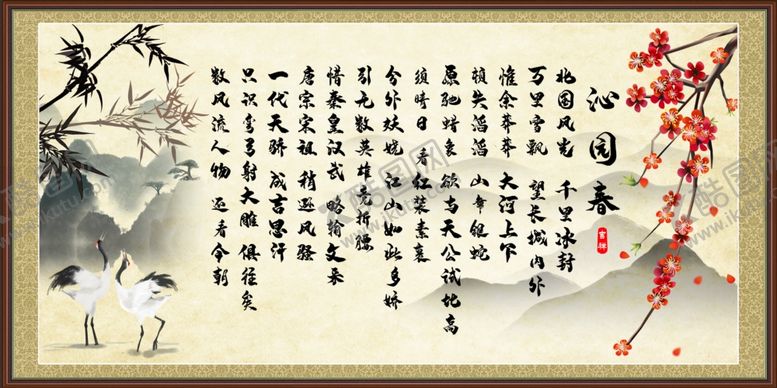 沁园春
北国风光 千里冰封
万里雪飘 望长城内外
惟余莽莽 大河上下
顿失滔滔 山舞银蛇
原驰蜡象 欲与天公试比高
须晴日 看红装素裹
分外妖娆 江山如此多娇
引无数英雄竞折腰
惜秦皇汉武 略输文采
唐宗宋祖 稍逊风骚
一代天骄 成吉思汗
只识弯弓射大雕 俱往矣
数风流人物 还看今朝